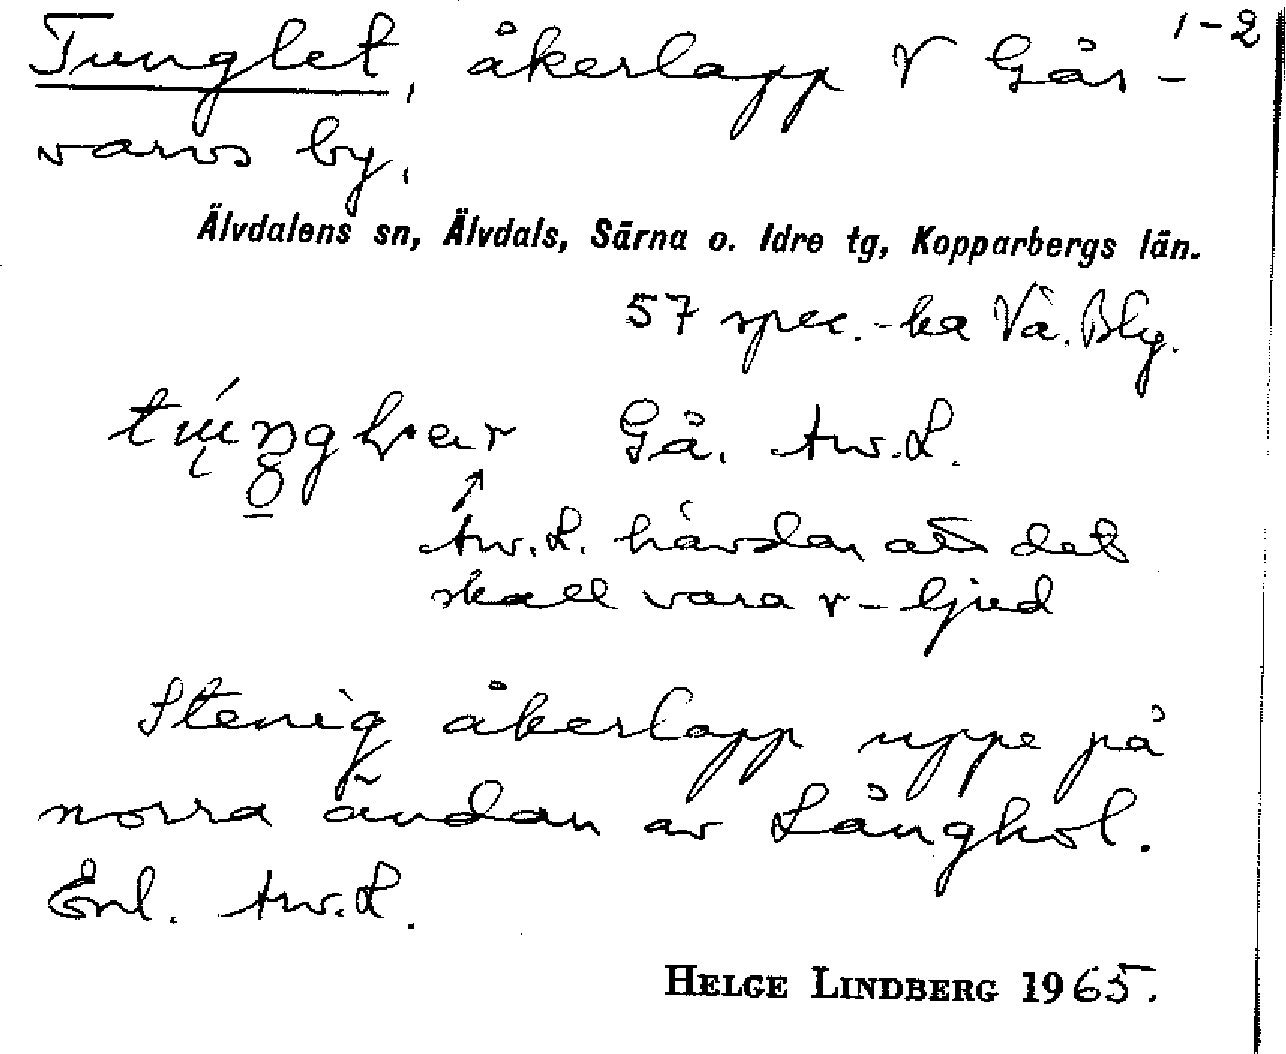 1-2
Tunglet, åkerlapp V Går-
varvs by.
Älvdalens sn, Älvdals, Särna o. Idre tg, Kopparbergs län.
57 spec.-ka Vä. Blg.
Gå. Aw.L.
Aw.L. hävdar att det
skall vara r-ljud
Stenig åkerlapp uppe på
norra ändan av Långhol.
Enl. Aw.L.
HELGE LINDBERG 1965.